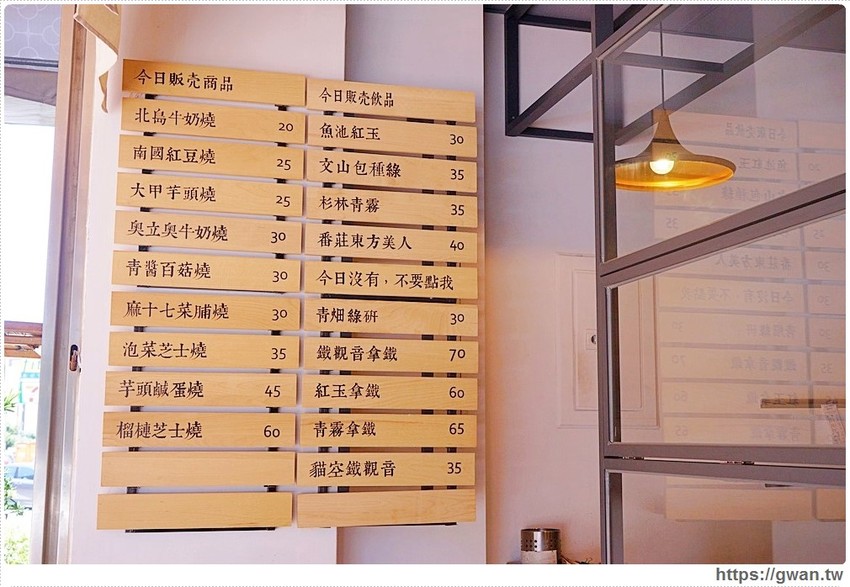 今日販売商品
北島牛奶燒 20
南國紅豆燒 25
大甲芋頭燒 25
奥立奥牛奶燒 30
青醬百菇燒 30
麻十七菜脯燒 30
泡菜芝士燒 35
芋頭鹹蛋燒 45
榴槤芝士燒 60
今日販売飲品
魚池紅玉 30
文山包種綠 35
杉林青霧 35
番莊東方美人 40
今日沒有，不要點我
青畑綠研 30
鐵觀音拿鐵 70
紅玉拿鐵 60
青霧拿鐵 65
貓空鐵觀音 35
https://gwan.tw